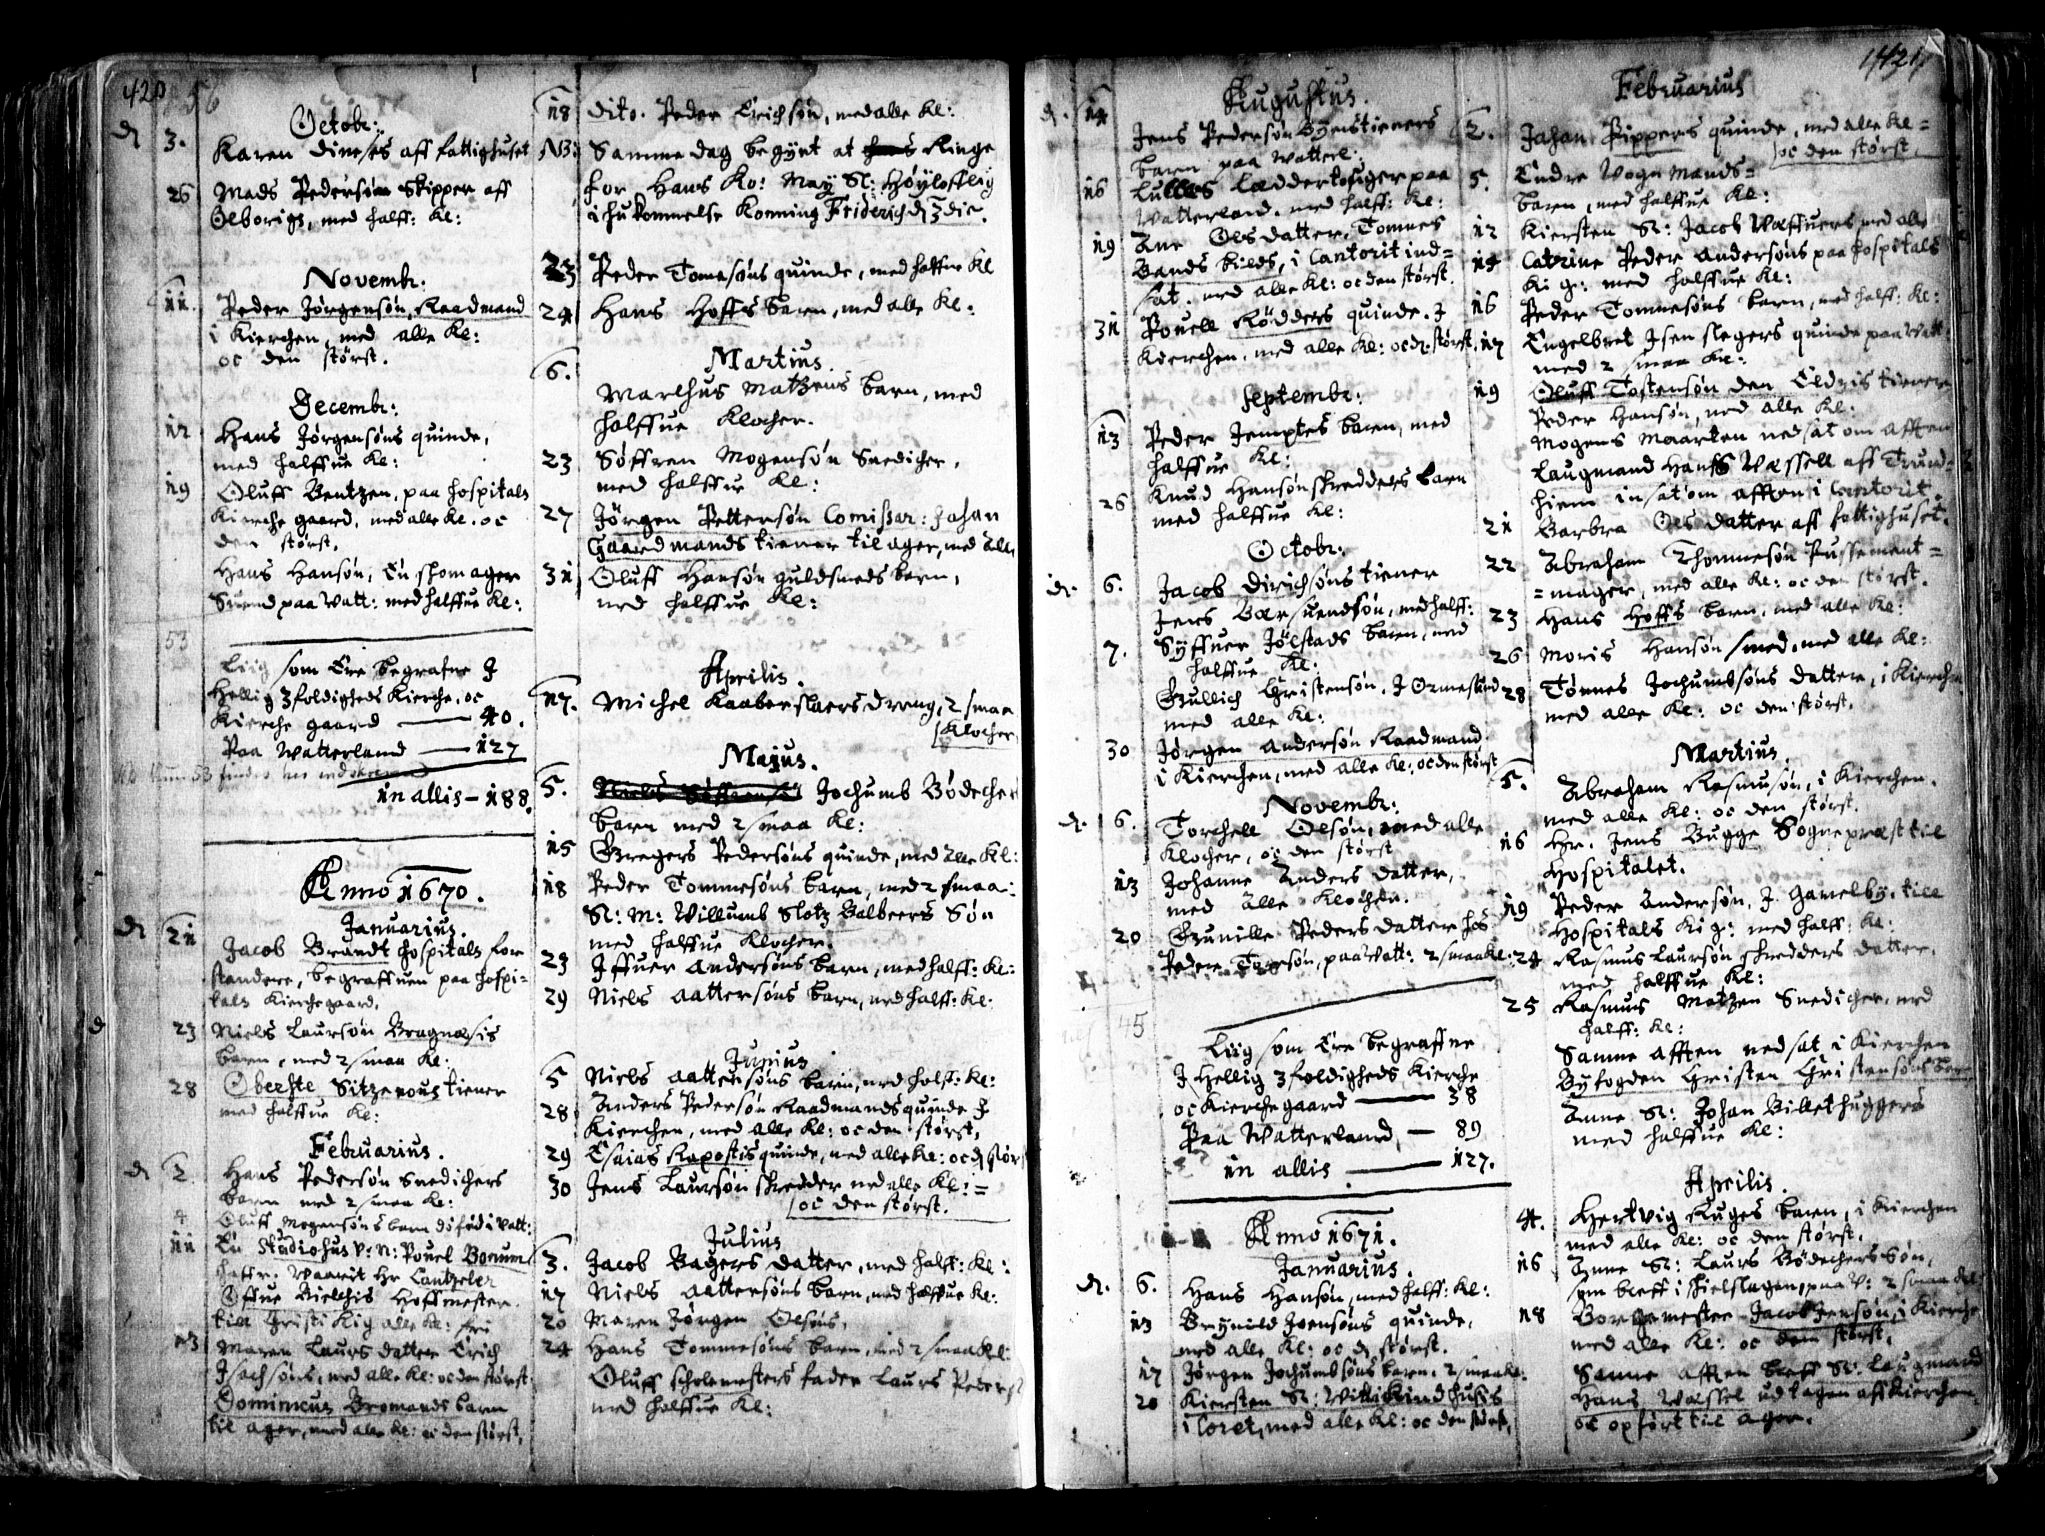 420
56
Octobr:
d 3. Karen Dineses aff fattighuset
26 Mads Pedersøn Skipper aff
Olborigs, med halff: Kl:
Novembr:
11. Peder Jørgensøn, Raadmand
i Kierchen, med alle Kl:
oc den størst.
Decembr:
12 Hans Jørgensøns quinde,
med halffue Kl:
19 Oluff Bentzen, paa Hospitals
Kierche gaard, med alle Kl. oc
den størst.
Hans Hansøn, En skomager
Suend paa Vatt: med halffue Kl:
53
Liig som Ere begrafne J
Hellig 3foldigheds Kierche, oc
Kierche gaard — 40.
Paa Watterland — 127
in allis — 188.
Anno 1670.
Januarius.
d 21 Jacob Brandt Hospitals for
standere, begraffuen paa Hospi-
tals Kierchegaard.
23 Niels Laursøn Bragnæsis
barn, med 2 smaa Kl:
28 Oberste Sitzenous tiener
med halffue Kl:
Februarius.
d 2 Hans Pedersøn Snedichers
barn med 2 smaa Kl:
4 Oluff Mogensøns barn død fød i Vatt:
11 En Studiosus v: n: Pouel Bonum
haffr. Waarit Hr Cantzeler
Offue Bielchis Hoffmester.
till Christi Kig alle Kl: fri
13 Maren Laurs datter Erich
Isachsøns, med alle Kl: oc den størst
Dominicus Bromands barn
til ager, med alle Kl: oc den størst.
18 dito. Peder Erichsøn, med alle Kl:
NB: Samme dag begynt at Ringe
for Hans Ko: May Sl: Høylofflig
ihukommelse Konning Friderich d 3die.
23 Peder Tomesøns quinde, med halfue Kl
24 Hans Hoffs barn, med alle Kl:
Martius.
6. Marchus Matzens barn, med
halffue Klocher.
23 Søffren Mogensøn Snedicher,
med halffue Kl:
27 Jørgen Pettersøn Comissar: Johan
Gaardmands tiener til ager, med alle
31 Oluff Hansøn guldsmeds barn,
med halffue Kl:
Aprilis.
17. Michel Kaaberslaers dreng, 2 smaa
Klocher
Majus.
5. Jochumb Bødecher
barn med 2 smaa Kl:
15 Gregers Pedersøns quinde, med alle Kl:
18 Peder Tommesøns barn, med 2 smaa:
Sl: M: Willumb Slotz Balbeers Søn
med halffue Klocher.
23 Iffuer Andersøns barn, med halff: Kl:
29 Niels Aattersøns barn, med halff: Kl:
Junius
5 Niels Aattersøns barn, med halff: Kl:
28 Anders Pedersøn Raadmands quinde J
Kierchen, med alle Kl: oc den størst,
29 Esaias Rapostis quinde, med alle Kl: oc d størst
30 Jens Laursøn skredder med alle Kl: =
oc den størst.
Julius
3. Jacob Bagers datter, med halff: Kl:
17 Niels Aattersøns barn, med halffue Kl:
20 Maren Jørgen Olsøns,
24 Hans Tommesøns barn, med 2 smaa Kl:
Oluff Scholemesters fader Laurs Peders
med halffue Kl:
421
Augustus.
d. 14 Jens Pedersøn Byens tieners
barn paa Watterl:
16 Lulles Læddertougerpaa
Watterland, med halff: Kl:
19 Ane Ols datter, Tomnes
Bands hilds, i Cantorit ind=
sat. med alle Kl: oc den størst
31 Pouell Rødders quinde. J
Kierchen, med alle Kl: oc d. størst.
Septembr:
13 Peder Jemptes barn, med
halffue Kl:
26 Knud Hansøn skredders barn
med halffue Kl:
Octobr:
d. 6. Jacob Dirichsøns tiener
Jens Bærsuendsøn, med halff:
7. Syffuer Jølstads barn, med
halffue Kl:
Gullich Christensøn, J Ormesund
med alle Kl:
30 Jørgen Andersøn Raadmand
i Kierchen, med alle Kl: oc den størst
Novembr:
d. 6. Torchell Olsøn, med alle
Klocher, oc den størst
13 Johanne Anders datter,
med alle Klocher.
20 Gunille Peders datter hos
Peder Toresøn, paa Vatt: 2 smaa Kl:
45
Liig som Ere begraffne
J Hellig 3foldigheds Kierche
oc Kierchegaard — 38
Paa Watterland, — 89
in allis — 127.
Anno 1671.
Januarius.
d. 6. Hans Hansøn, med halff: Kl:
13 Brynild Joensøns quinde,
med alle Kl: oc d størst.
17 Jørgen Jochumbsøns barn. 2 smaa Kl:
20 Kiersten Sl: Wittekind Husis
i Coret, med alle Kl: oc den størst,
Februarius
2. Johan Pippers quinde, med alle Kl=
oc den størst,
5. Endre Vogn mands=
barn, med halffue Kl:
12 Kiersten Sl: Jacob Wæffuers, med alle
14 Catrine Peder Andersøns paa Hospitals
Kig: med halffue Kl:
16 Peder Tommesøns barn, med halff: Kl:
17 Engelbret Isenslegers quinde paa Vatt:
med 2 smaa Kl:
19 Oluff Tostensøn den Eldris tiener
Peder Hansøn, med alle Kl:
Mogens Maarten nedsat om afften
Laugmand Hanss Wæssell aff Trund=
hiem insat om afften i Cantorit.
21 Barbra Ols datter aff fattighuset.
22 Abraham Thommesøn Possement=
=mager, med alle Kl: oc den størst.
23 Hans Hoffs barn, med alle Kl:
26 Moris Hansøn smed, med alle Kl:
28 Tønnes Jochumbsøns datter, i Kierchen
med alle Kl: oc den størst.
Martius
5. Abraham Rasmusøn, i Kierchen.
med alle Kl: oc den størst.
16 Hr. Jens Bugge Sogneprest til
Hospitalet.
19 Peder Andersøn, J. Gamelby, till
Hospitals Kig: med halff: Kl:
24 Rasmus Laursøn skredders datter,
med halffue Kl:
25 Rasmus Matzen Snedicher, med
halff: Kl:
Samme afften nedsat i Kierchen
Byfogden Christen Christensøns barn
Anne Sl: Johan Billethuggers
med halffue Kl:
Aprilis.
4. Hertvig Ruges barn, i Kierchen
med alle Kl: oc den størst.
16 Anne Sl: Laurs Bødechers Søn,
som bleff ihielslagen, paa V: 2 smaa Kl:
18 Borgemester Jacob Jensøn, i Kierche
med alle Kl: oc den størst.
Samme afften bleff Sl: Laugmand
Hans Wæssel udtagen aff Kierchen
oc opført til ager.